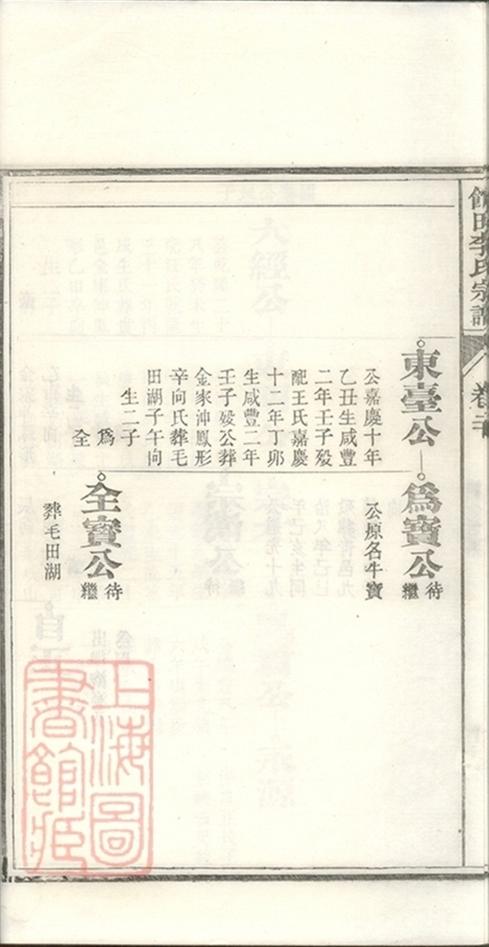 田李氏宗譜
卷
東臺公
公嘉慶十年
乙丑生咸豐
二年壬子殁
配王氏嘉慶
十二年丁卯
生咸豐二年
壬子殁公葬
金家沖鳳形
辛向氏葬毛
田湖子午向
生二子
爲
全
爲寶公
待
繼
公原名牛寶
全寶公
待
繼
葬毛田湖
上海圖
書館藏